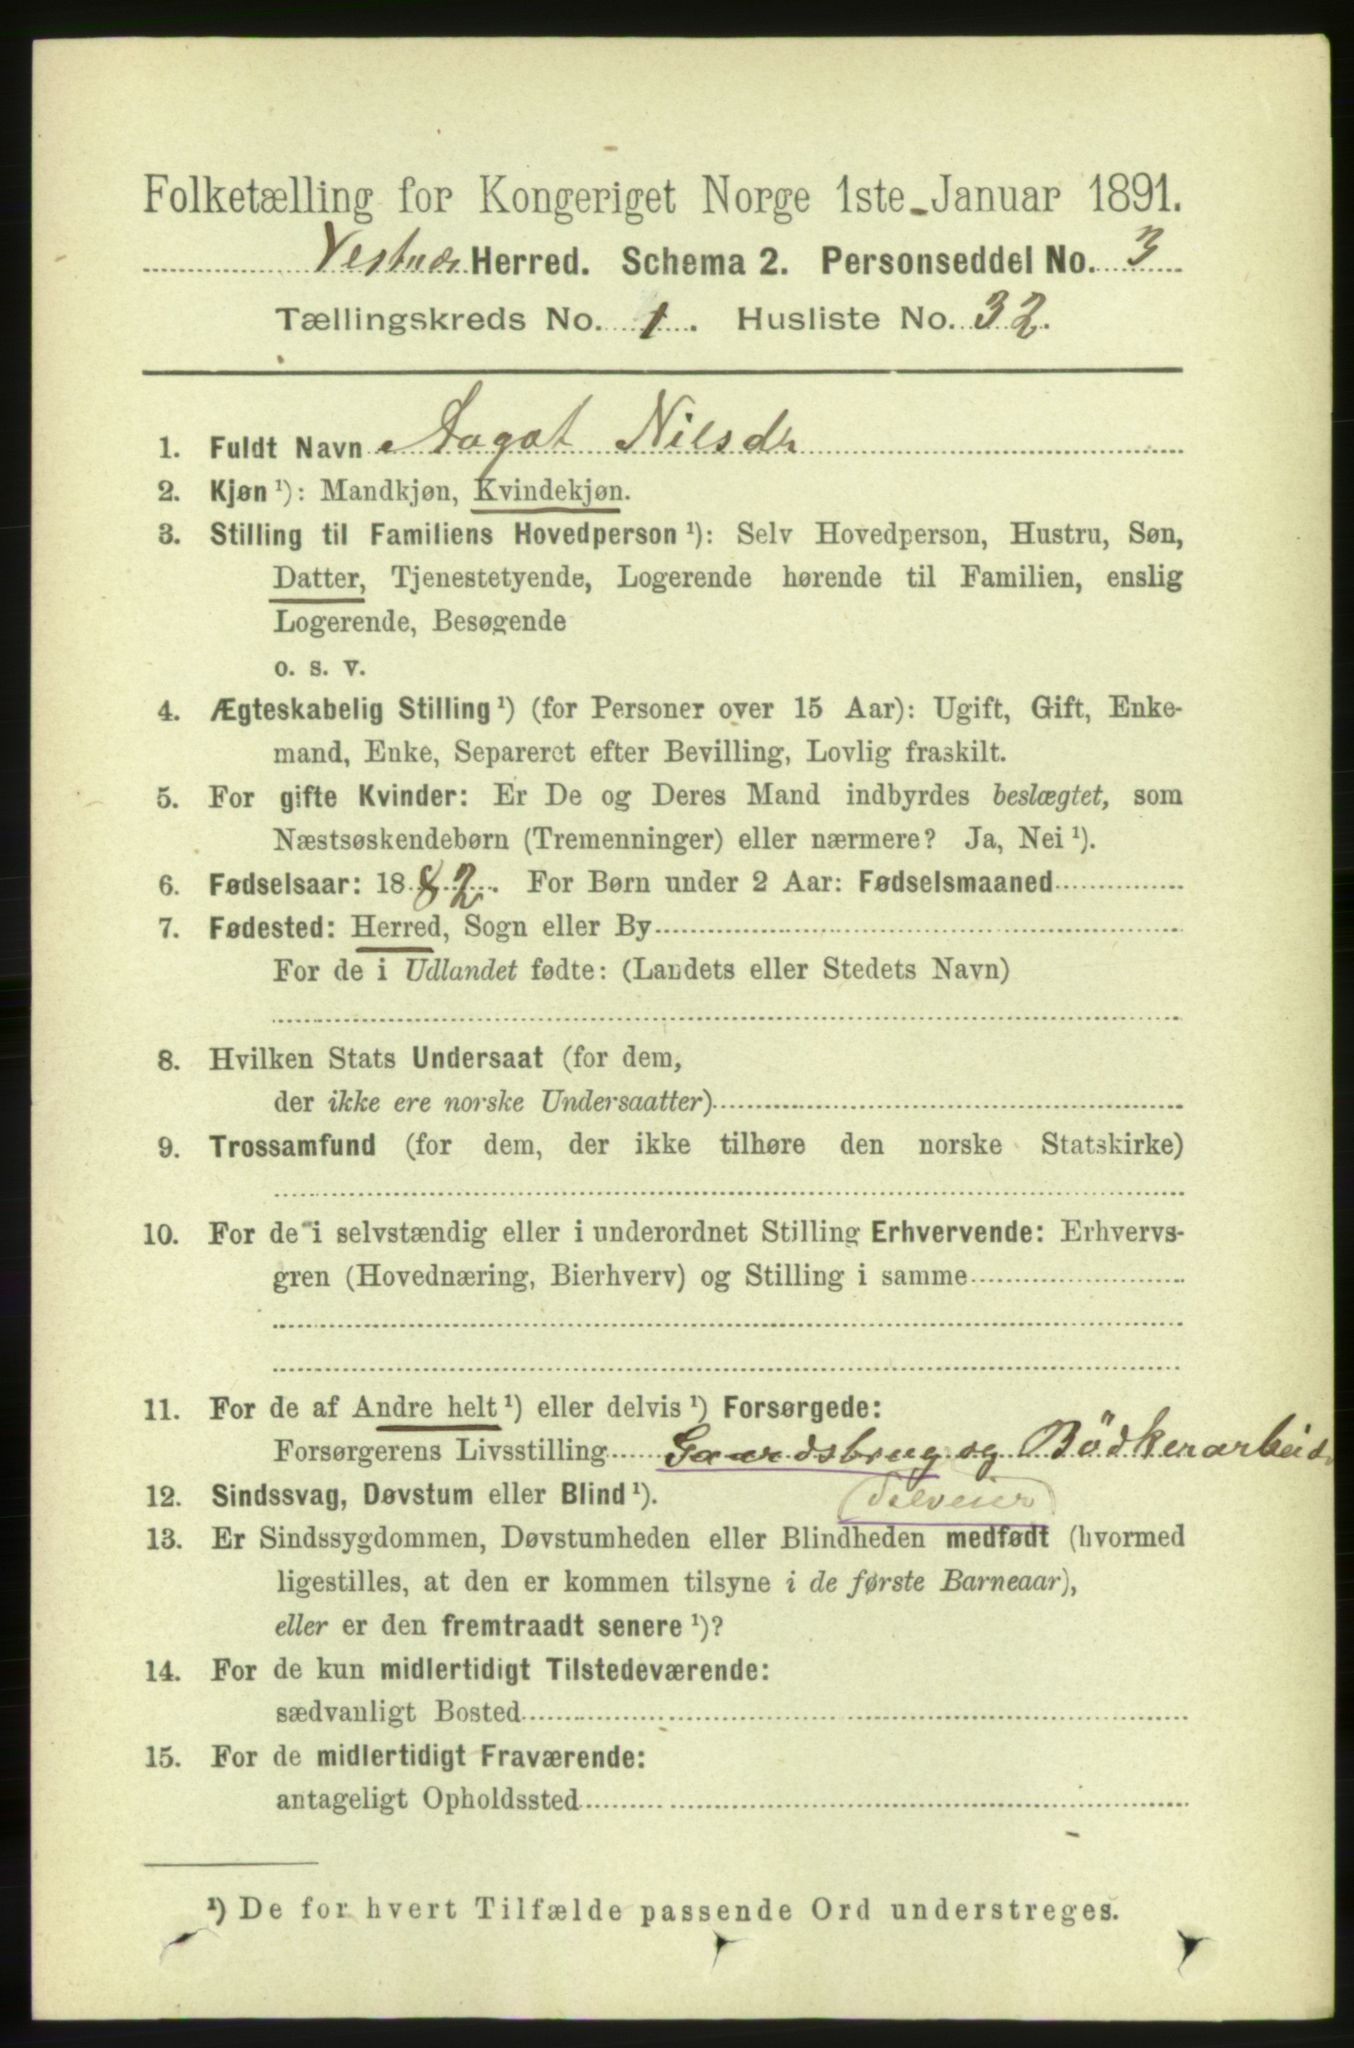 Folketælling for Kongeriget Norge 1ste Januar 1891.
Vestnæs Herred. Schema 2. Personseddel No. 3
Tællingskreds No. 1. Husliste No. 32.
1. Fuldt Navn Aagot Nilsdr
2. Kjøn ¹): Mandkjøn, Kvindekjøn.
3. Stilling til Familiens Hovedperson ¹): Selv Hovedperson, Hustru, Søn,
Datter, Tjenestetyende, Logerende hørende til Familien, enslig
Logerende, Besøgende
o. s. v.
4. Ægteskabelig Stilling ¹) (for Personer over 15 Aar): Ugift, Gift, Enke-
mand, Enke, Separeret efter Bevilling, Lovlig fraskilt.
5. For gifte Kvinder: Er De og Deres Mand indbyrdes beslægtet, som
Næstsøskendebørn (Tremenninger) eller nærmere? Ja, Nei ¹).
6. Fødselsaar: 1882. For Børn under 2 Aar: Fødselsmaaned
7. Fødested: Herred, Sogn eller By
For de i Udlandet fødte: (Landets eller Stedets Navn)
8. Hvilken Stats Undersaat (for dem,
der ikke ere norske Undersaatter)
9. Trossamfund (for dem, der ikke tilhøre den norske Statskirke)
10. For de i selvstændig eller i underordnet Stilling Erhvervende: Erhvervs-
gren (Hovednæring, Bierhverv) og Stilling i samme
11. For de af Andre helt ¹) eller delvis ¹) Forsørgede:
Forsørgerens Livsstilling Gaardsbrug og Bödkerarbeid
12. Sindssvag, Døvstum eller Blind ¹). (Selveier)
13. Er Sindssygdommen, Døvstumheden eller Blindheden medfødt (hvormed
ligestilles, at den er kommen tilsyne i de første Barneaar),
eller er den fremtraadt senere ¹)?
14. For de kun midlertidigt Tilstedeværende:
sædvanligt Bosted
15. For de midlertidigt Fraværende:
antageligt Opholdssted
¹) De for hvert Tilfælde passende Ord understreges.